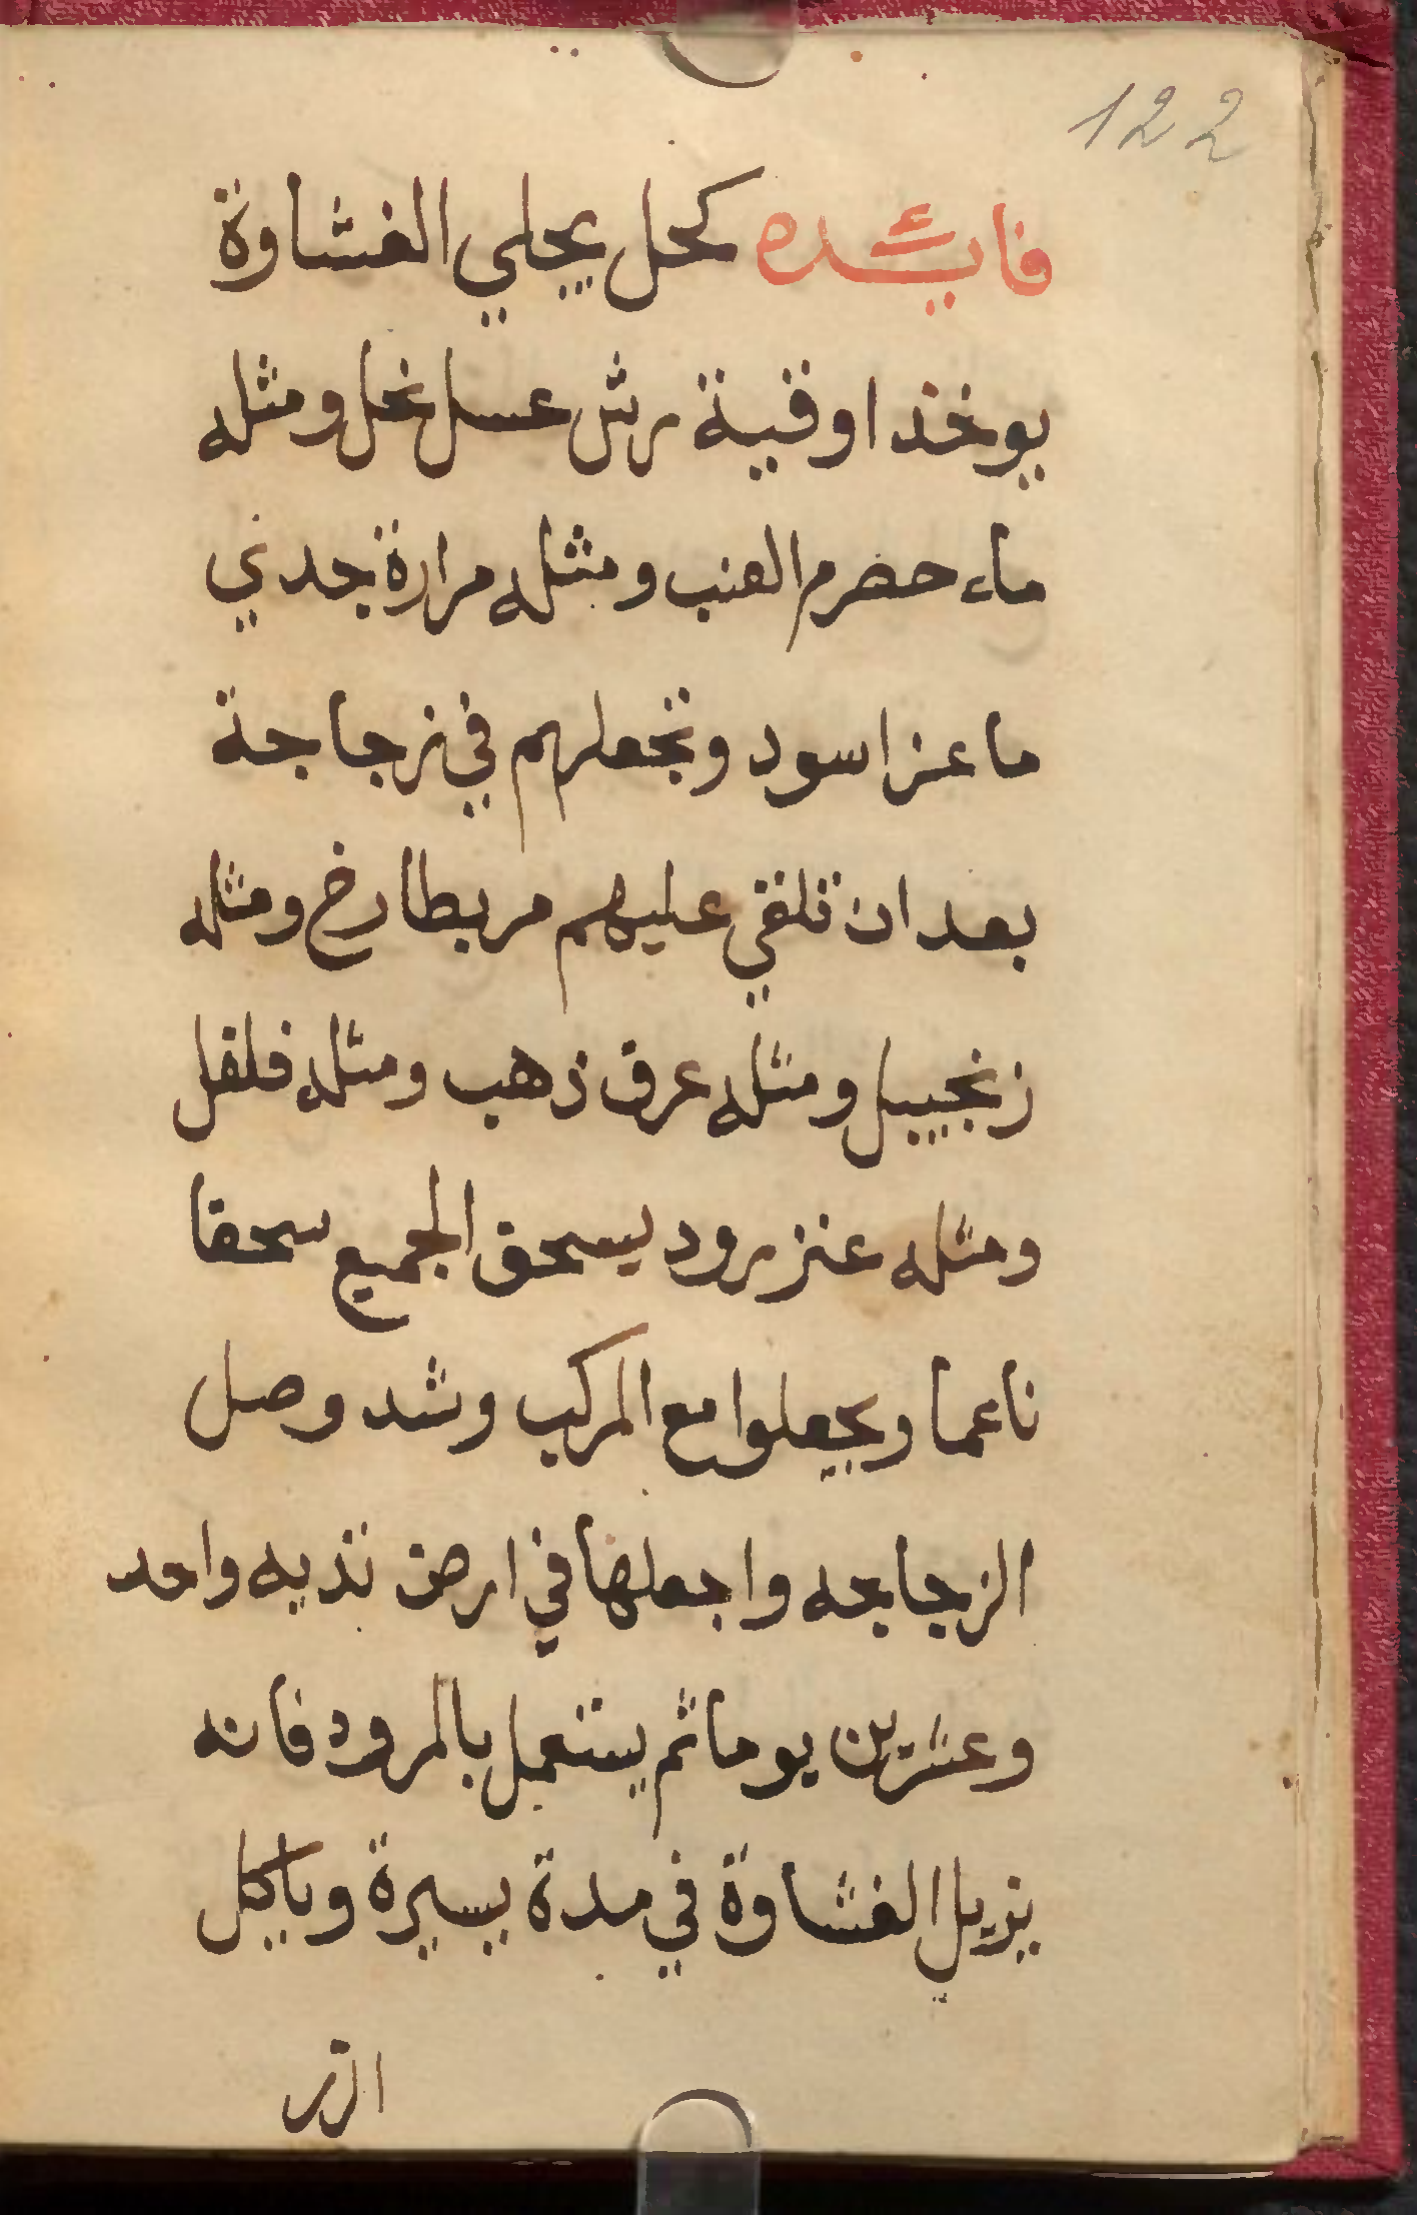 122
فايئده كحل يجلي الغشاوة
يوخذ اوقية رش عسل نحل ومثله
ماء حضرم العنب ومثله مرارة جدي
ماعز اسود وتجعلهم في زجاجة
بعد ان تلقي عليهم مربطارخ ومثله
زنجبيل ومثله عرق ذهب ومثله فلفل
ومثله عنزرود يسحق الجميع سحقا
ناعما ويجعلوا مع المركب وشد وصل
الزجاجه واجعلها في ارض نديه واحد
وعشرين يوما ثم يستعمل بالمرود فانه
يزيل الغشاوة في مدة يسيرة وياكل